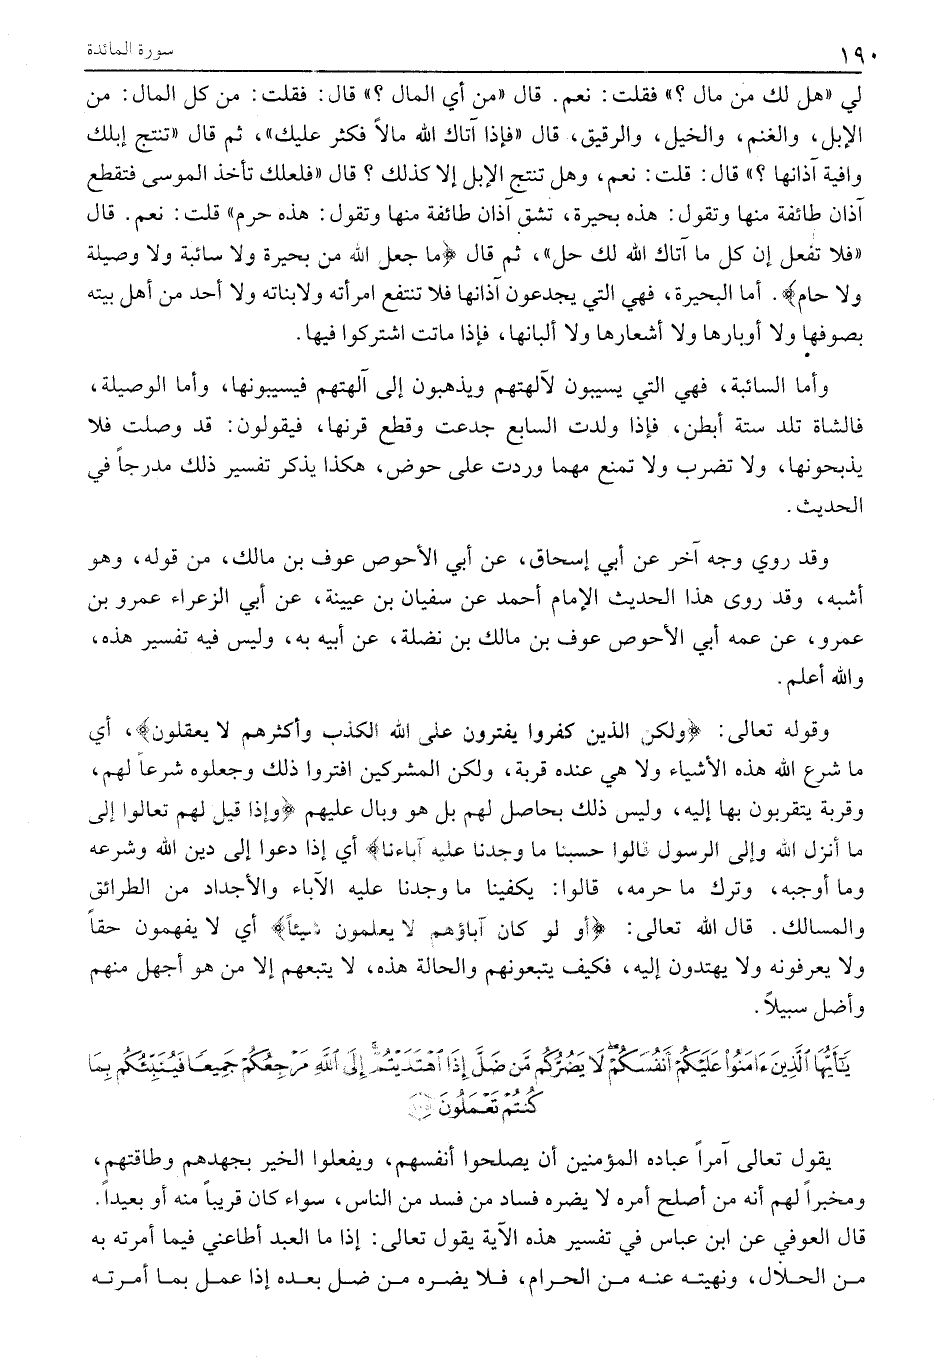 ١٩٠ سورة المائدة
لي «هل لك من مال ؟» فقلت: نعم. قال «من أي المال ؟» قال: فقلت: من كل المال: من
الإبل، والغنم، والخيل، والرقيق، قال «فإذا آتاك الله مالاً فكثر عليك»، ثم قال «تنتج إبلك
وافية آذانها ؟» قال: قلت: نعم، وهل تنتج الإبل إلا كذلك ؟ قال «فلعلك تأخذ الموسى فتقطع
آذان طائفة منها وتقول: هذه بحيرة، تشق آذان طائفة منها وتقول: هذه حرم» قلت: نعم. قال
«فلا تفعل إن كل ما آتاك الله لك حل»، ثم قال ﴿ما جعل الله من بحيرة ولا سائبة ولا وصيلة
ولا حام﴾. أما البحيرة، فهي التي يجدعون آذانها فلا تنتفع امرأته ولابناته ولا أحد من أهل بيته
بصوفها ولا أوبارها ولا أشعارها ولا ألبانها، فإذا ماتت اشتركوا فيها.
وأما السائبة، فهي التي يسيبون لآلهتهم ويذهبون إلى آلهتهم فيسيبونها، وأما الوصيلة،
فالشاة تلد ستة أبطن، فإذا ولدت السابع جدعت وقطع قرنها، فيقولون: قد وصلت فلا
يذبحونها، ولا تضرب ولا تمنع مهما وردت على حوض، هكذا يذكر تفسير ذلك مدرجاً في
الحديث.
وقد روي وجه آخر عن أبي إسحاق، عن أبي الأحوص عوف بن مالك، من قوله، وهو
أشبه، وقد روى هذا الحديث الإمام أحمد عن سفيان بن عيينة، عن أبي الزعراء عمرو بن
عمرو، عن عمه أبي الأحوص عوف بن مالك بن نضلة، عن أبيه به، وليس فيه تفسير هذه،
والله أعلم.
وقوله تعالى: ﴿ولكن الذين كفروا يفترون على الله الكذب وأكثرهم لا يعقلون﴾، أي
ما شرع الله هذه الأشياء ولا هي عنده قربة، ولكن المشركين افتروا ذلك وجعلوه شرعاً لهم،
وقربة يتقربون بها إليه، وليس ذلك بحاصل لهم بل هو وبال عليهم ﴿وإذا قيل لهم تعالوا إلى
ما أنزل الله وإلى الرسول قالوا حسبنا ما وجدنا عليه آباءنا﴾ أي إذا دعوا إلى دين الله وشرعه
وما أوجبه، وترك ما حرمه، قالوا: يكفينا ما وجدنا عليه الآباء والأجداد من الطرائق
والمسالك. قال الله تعالى: ﴿أو لو كان آباؤهم لا يعلمون شيئاً﴾ أي لا يفهمون حقاً
ولا يعرفونه ولا يهتدون إليه، فكيف يتبعونهم والحالة هذه، لا يتبعهم إلا من هو أجهل منهم
وأضل سبيلاً.
يَٰٓأَيُّهَا ٱلَّذِينَ ءَامَنُوا۟ عَلَيْكُمْ أَنفُسَكُمْ ۖ لَا يَضُرُّكُم مَّن ضَلَّ إِذَا ٱهْتَدَيْتُمْ ۚ إِلَى ٱللَّهِ مَرْجِعُكُمْ جَمِيعًا فَيُنَبِّئُكُم بِمَا
كُنتُمْ تَعْمَلُونَ ١٠٥
يقول تعالى آمراً عباده المؤمنين أن يصلحوا أنفسهم، ويفعلوا الخير بجهدهم وطاقتهم،
ومخبراً لهم أنه من أصلح أمره لا يضره فساد من فسد من الناس، سواء كان قريباً منه أو بعيداً.
قال العوفي عن ابن عباس في تفسير هذه الآية يقول تعالى: إذا ما العبد أطاعني فيما أمرته به
من الحلال، ونهيته عنه من الحرام، فلا يضره من ضل بعده إذا عمل بما أمرته